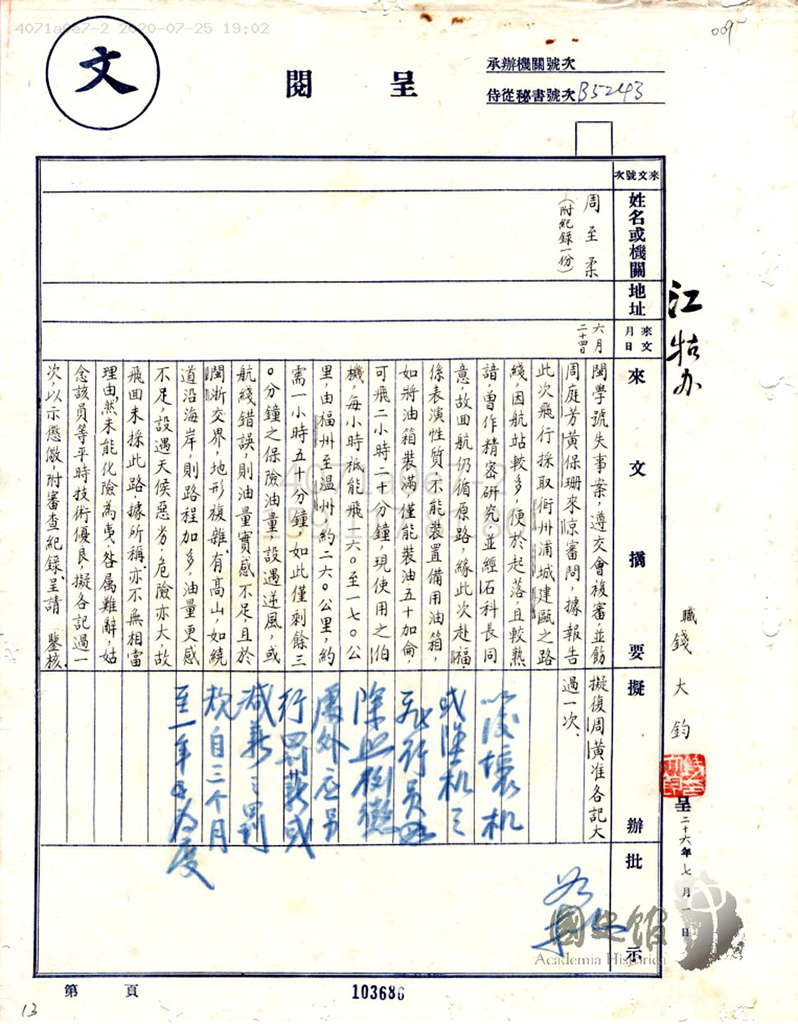 4071a0e7-2 2020-07-25 19:02
009
文
呈閱
承辦機關號次
侍從秘書號次 B5243
來文號次
姓名或機關
周至柔
(附紀錄一份)
地址
來文月日
六月
二十四
來文摘要
閩學號失事案,遵交會複審並飭
周庭芳黃保珊來京審問,據報告
此次飛行採取衢州浦城建甌之路
綫,因航站較多,便於起落,且較熟
諳,曾作精密研究,並經石科長同
意,故回航仍循原路,緣此次赴福,
係表演性質,不能裝置備用油箱,
如將油箱裝滿僅能裝油五十加侖,
可飛二小時二十分鐘,現使用之伯
機,每小時祇能飛一六〇至一七〇公
里,由福州至溫州,約二六〇公里,約
需一小時五十分鐘,如此僅剩餘三
〇分鐘之保險油量,設遇逆風,或
航綫錯誤,則油量實感不足,且於
閩浙交界,地形複雜,有高山,如繞
道沿海岸,則路程加多,油量更感
不足,設遇天候惡劣,危險亦大,故
飛回未採此路,據所稱,亦不無相當
理由,然未能化險為夷,咎屬難辭,姑
念該員等平時技術優良,擬各記過一
次,以示懲儆,附審查紀錄,呈請 鑒核
擬辦
擬復周黃准各記大
過一次、
以後壞機
或墜机之
飛行員
除照例懲
處外應另
行罰薪或
減薪之罰
規自三个月
至一年為度
批示
職錢大鈞
呈 二十六年七月一日
第 頁
103686
13
國史館
Academia Historica
4071a0e7-2